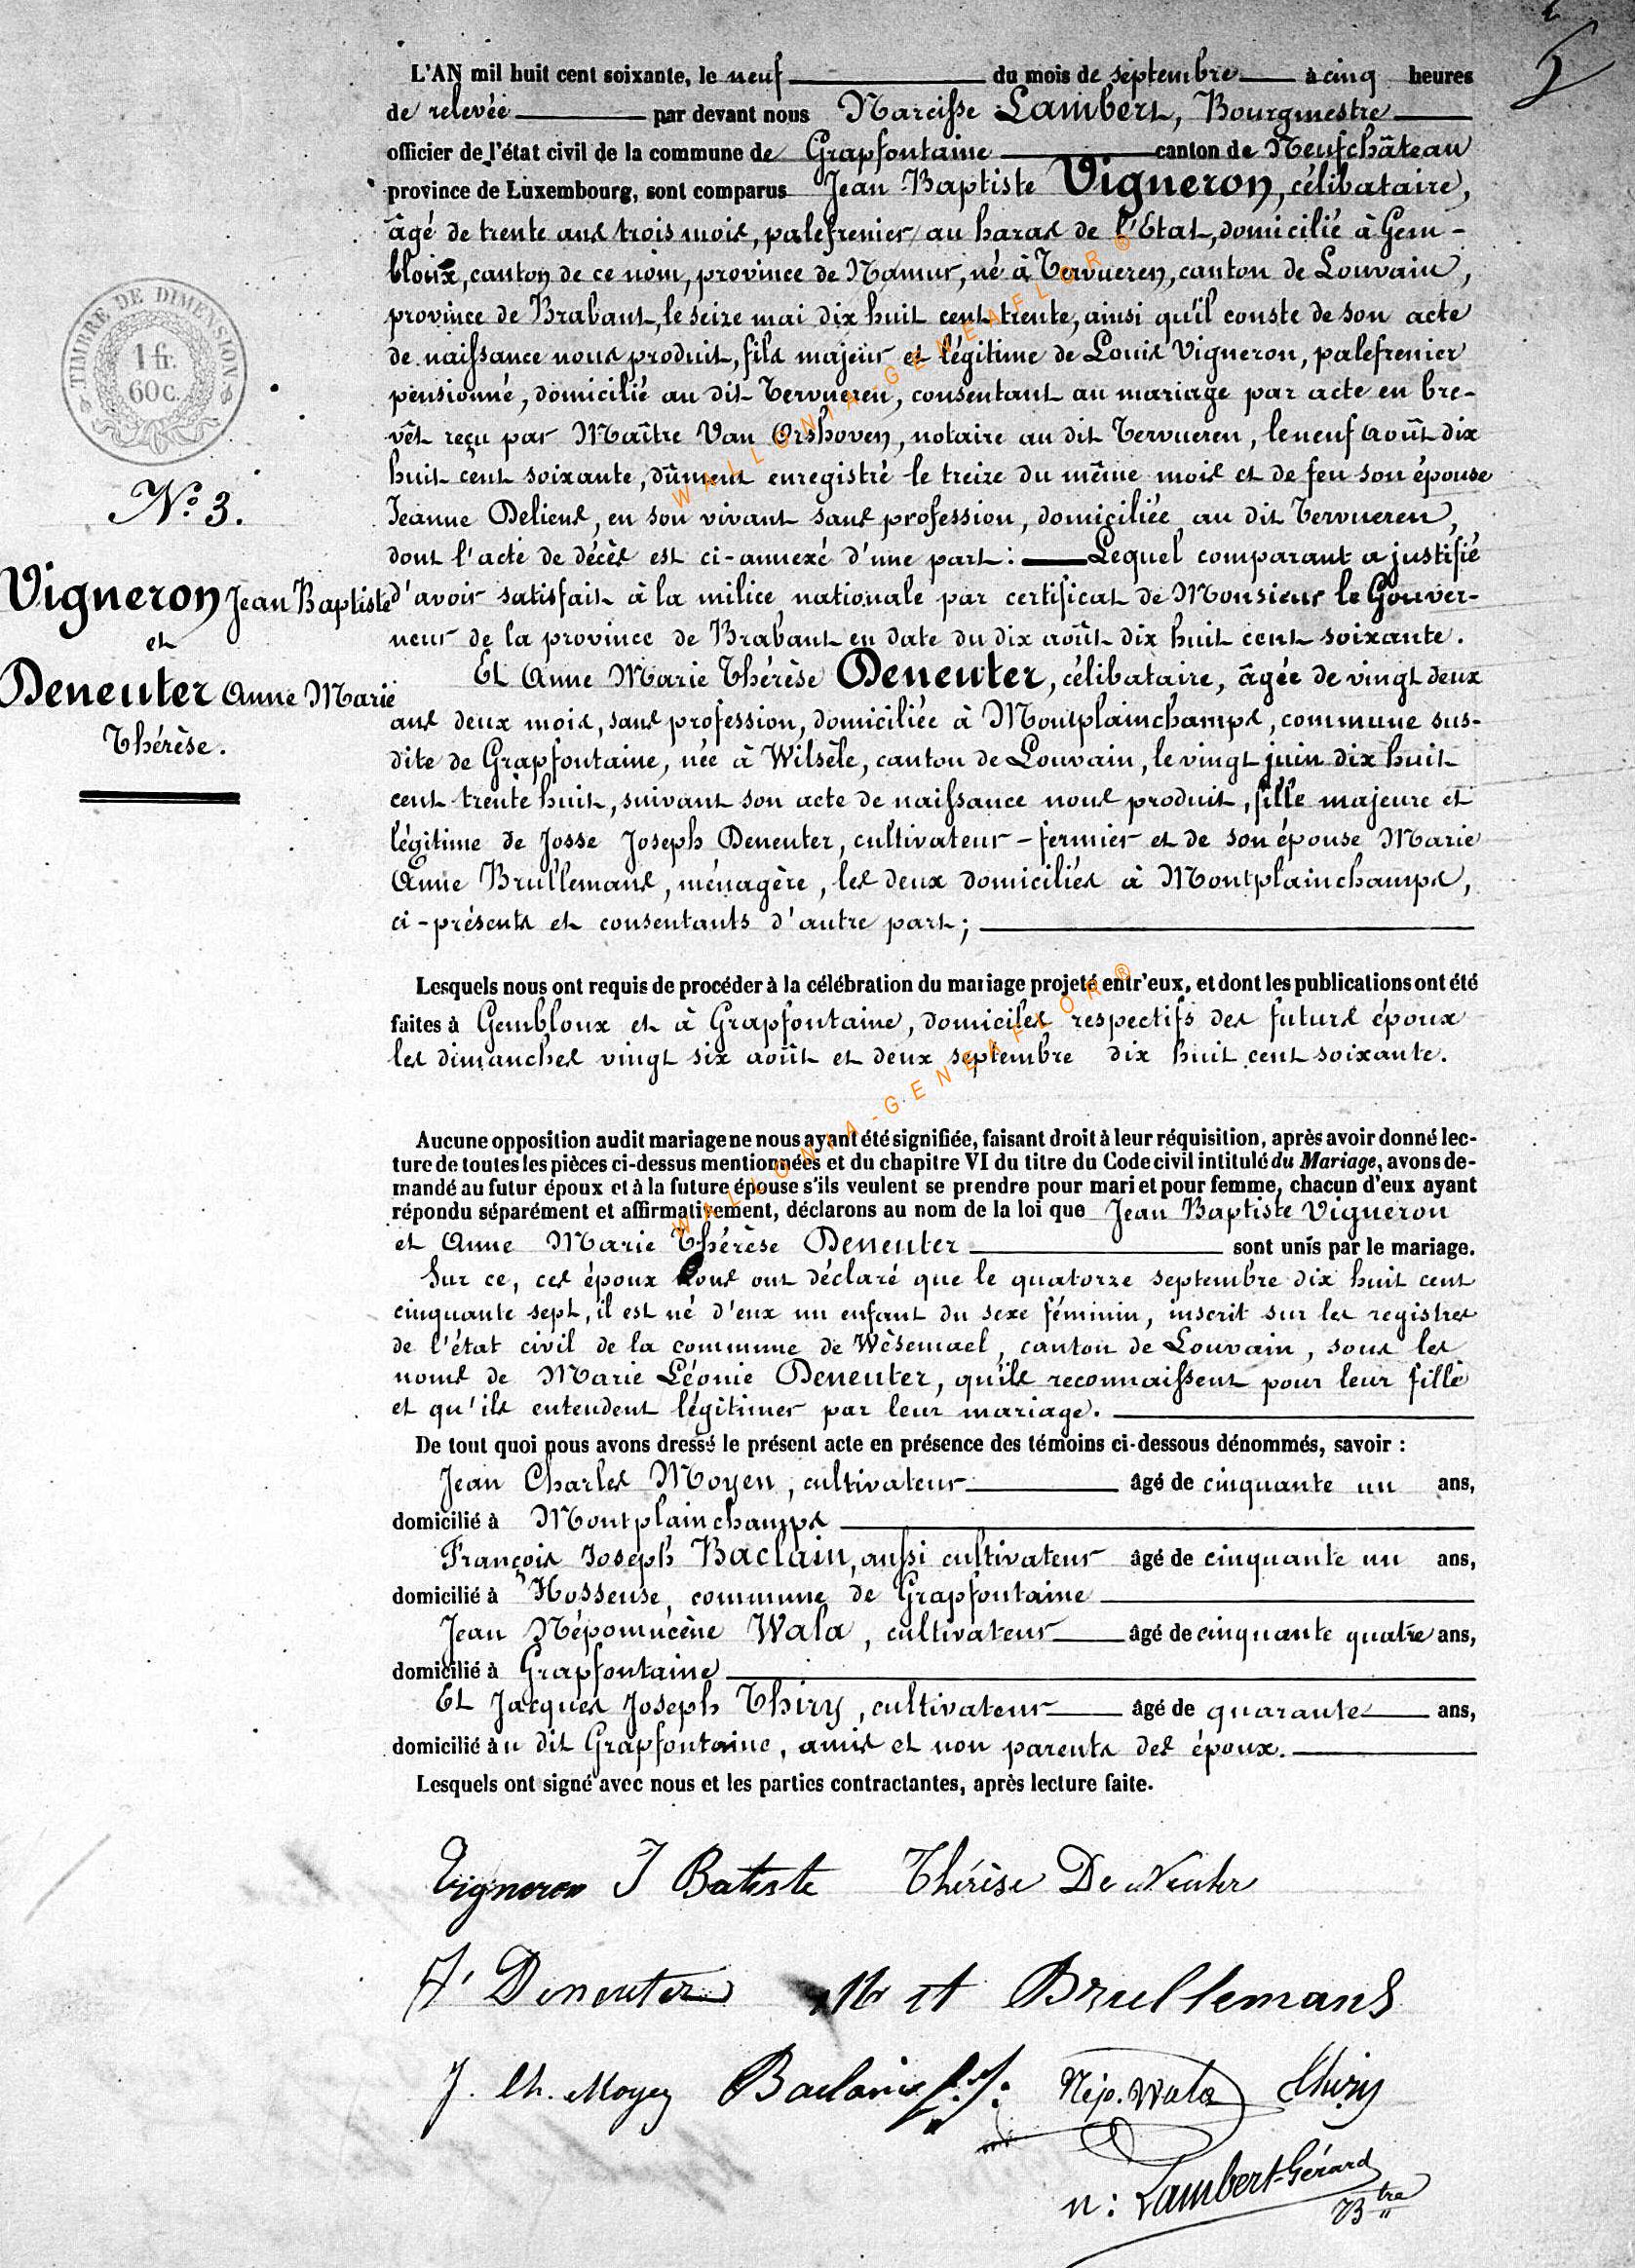 5
L'AN mil huit cent soixante, le neuf du mois de septembre à cinq heures
de relevée par devant nous Narcisse Lambert, Bourgmestre
officier de l'état civil de la commune de Grapfontaine canton de Neufchâteau
province de Luxembourg, sont comparus Jean Baptiste Vigneron, célibataire,
âgé de trente ans trois mois, palefrenier au haras de l'Etat, domicilié à Gem-
bloux, canton de ce nom, province de Namur, né à Tervueren, canton de Louvain,
province de Brabant, le seize mai dix huit cent trente, ainsi qu'il conste de son acte
de naissance nous produit, fils majeur et légitime de Louis Vigneron, palefrenier
pensionné, domicilié au dit Tervueren, consentant au mariage par acte en bre-
vêt reçu par Maître Van Orshoven, notaire au dit Tervueren, le neuf août dix
huit cent soixante, dûment enregistré le treize du même mois et de feu son épouse
Jeanne Deliens, en son vivant sans profession, domiciliée au dit Tervueren,
dont l'acte de décès est ci-annexé d'une part: Lequel comparant a justifié
d'avoir satisfait à la milice nationale par certificat de Monsieur le Gouver-
neur de la province de Brabant en date du dix août dix huit cent soixante.
Et Anne Marie Thérèse Deneuter, célibataire, âgée de vingt deux
ans deux mois, sans profession, domiciliée à Montplainchamps, commune sus-
dite de Grapfontaine, née à Wilsèle, canton de Louvain, le vingt juin dix huit
cent trente huit, suivant son acte de naissance nous produit, fille majeure et
légitime de Josse Joseph Deneuter, cultivateur - fermier et de son épouse Marie
Anne Brullemans, ménagère, les deux domiciliés à Montplainchamps,
ci-présents et consentants d'autre part;
TIMBRE DE DIMENSION
1 fr.
60 c.
N° 3.
Vigneron Jean Baptiste
et
Deneuter Anne Marie
Thérèse.
Lesquels nous ont requis de procéder à la célébration du mariage projeté entr'eux, et dont les publications ont été
faites à Gembloux et à Grapfontaine, domiciles respectifs des futurs époux
les dimanches vingt six août et deux septembre dix huit cent soixante.
Aucune opposition audit mariage ne nous ayant été signifiée, faisant droit à leur réquisition, après avoir donné lec-
ture de toutes les pièces ci-dessus mentionnées et du chapitre VI du titre du Code civil intitulé du Mariage, avons de-
mandé au futur époux et à la future épouse s'ils veulent se prendre pour mari et pour femme, chacun d'eux ayant
répondu séparément et affirmativement, déclarons au nom de la loi que Jean Baptiste Vigneron
et Anne Marie Thérèse Deneuter sont unis par le mariage.
Sur ce, ces époux nous ont déclaré que le quatorze septembre dix huit cent
cinquante sept, il est né d'eux un enfant du sexe féminin, inscrit sur les registres
de l'état civil de la commune de Wèsemael, canton de Louvain, sous les
noms de Marie Léonie Deneuter, qu'ils reconnaissent pour leur fille
et qu'ils entendent légitimer par leur mariage.
De tout quoi nous avons dressé le présent acte en présence des témoins ci-dessous dénommés, savoir :
Jean Charles Moyen, cultivateur âgé de cinquante un ans,
domicilié à Montplainchamps
François Joseph Baclain, aussi cultivateur âgé de cinquante un ans,
domicilié à Hosseuse, commune de Grapfontaine
Jean Népomucène Wala, cultivateur âgé de cinquante quatre ans,
domicilié à Grapfontaine
Et Jacques Joseph Thiry, cultivateur âgé de quarante ans,
domicilié au dit Grapfontaine, amis et non parents des époux.
Lesquels ont signé avec nous et les parties contractantes, après lecture faite.
Vigneron J Batiste Thérèse De Neuter
Deneuter Brullemans
J. Ch. Moyen Baclain f. j. Nép. Wala Thiry
n: Lambert-Gérard
Btre
WALLONIA-GENEAFLOR®
WALLONIA-GENEAFLOR®